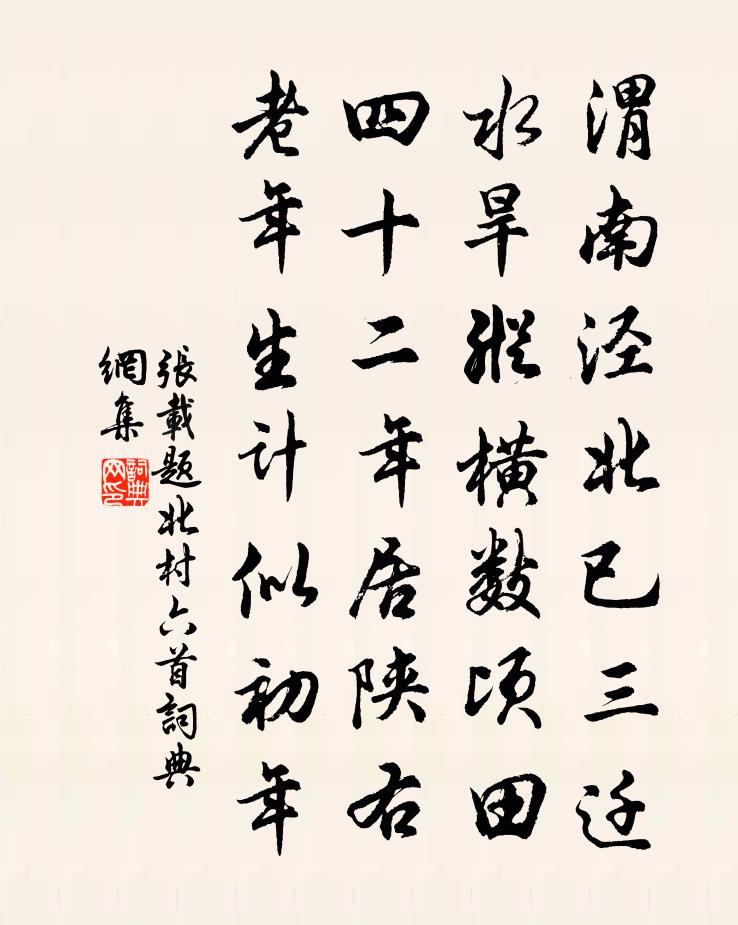 渭南泾北已三迁
水旱縱橫数顷田
四十二年居陕右
老年生计似初年
張載题北村六首詞典
網集
詞典
网印